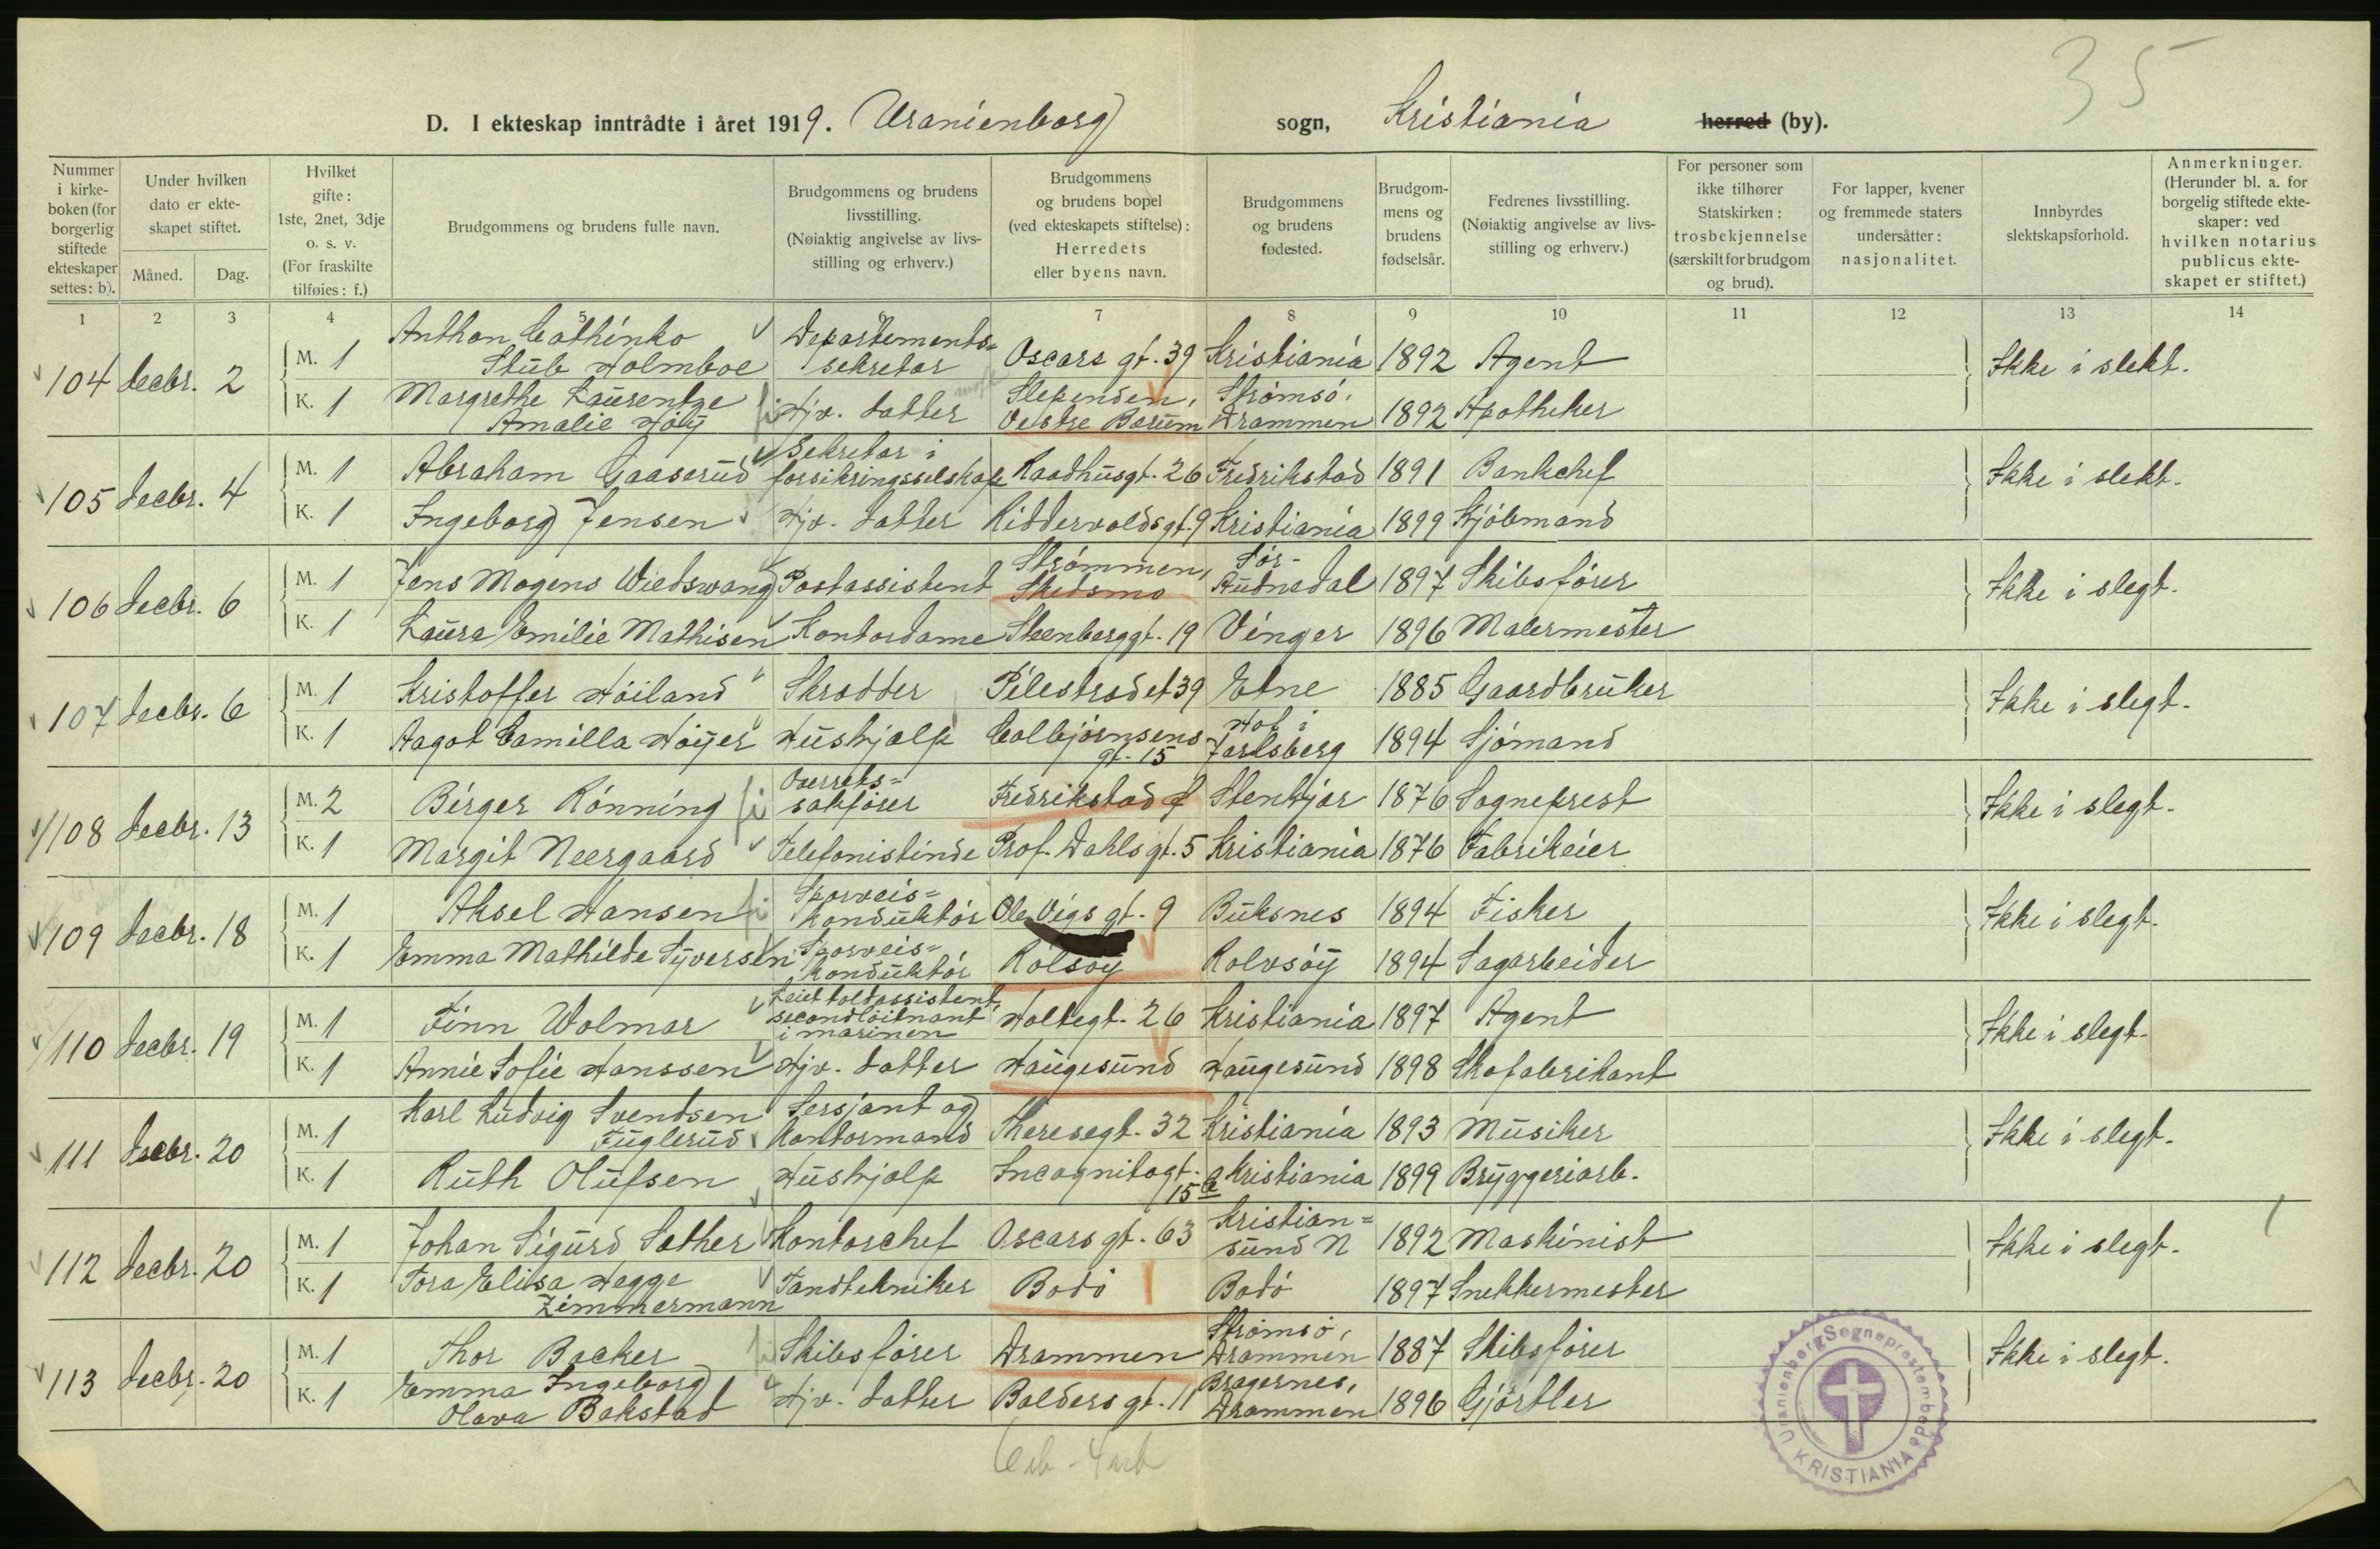 35
D. I ekteskap inntrådte i året 1919. Uranienborg sogn, Kristiania herred (by).
Nummer i kirke-boken (for borgerlig stiftede ekteskaper settes: b).
Under hvilken dato er ekte-skapet stiftet.
Måned. Dag.
Hvilket gifte: 1ste, 2net, 3dje o. s. v. (For fraskilte tilføies: f.)
Brudgommens og brudens fulle navn.
Brudgommens og brudens livsstilling. (Nøiaktig angivelse av livs-stilling og erhverv.)
Brudgommens og brudens bopel (ved ekteskapets stiftelse): Herredets eller byens navn.
Brudgommens og brudens fødested.
Brudgom-mens og brudens fødselsår.
Fedrenes livsstilling. (Nøiaktig angivelse av livs-stilling og erhverv.)
For personer som ikke tilhører Statskirken: trosbekjennelse (særskilt for brudgom og brud).
For lapper, kvener og fremmede staters undersåtter: nasjonalitet.
Innbyrdes slektskapsforhold.
Anmerkninger. (Herunder bl. a. for borgelig stiftede ekte-skaper: ved hvilken notarius publicus ekte-skapet er stiftet.)
1 2 3 4 5 6 7 8 9 10 11 12 13 14
104 Decbr. 2 M. 1 Anthon Cathinko Stub Holmboe Departements=sekretær Oscars gt. 39 Kristiania 1892 Agent Ikke i slekt.
K. 1 Margrethe Laurentze Amalie Höÿ Hjv. datter Slependen, Vestre Bærum Strömsö, Drammen 1892 Apotheker
105 Decbr. 4 M. 1 Abraham Gaaserud Sekretær i forsikringsselskap Raadhusgt. 26 Fredrikstad 1891 Bankchef Ikke i slekt.
K. 1 Ingeborg Jensen Hjv. datter Riddervoldsgt. 9 Kristiania 1899 Kjöbmand
106 Decbr. 6 M. 1 Jens Mogens Wiedswang Postassistent Strömmen, Skedsmo Sör-Audnedal 1897 Skibsförer Ikke i slegt.
K. 1 Laura Emilie Mathisen Kontordame Stenberggt. 19 Vinger 1896 Malermester
107 Decbr. 6 M. 1 Kristoffer Höiland Skrædder Pilestrædet 39 Etne 1885 Gaardbruker Ikke i slegt.
K. 1 Aagot Camilla Höÿer Hushjælp Colbjörnsens gt. 15 Hof i Jarlsberg 1894 Sjömand
108 Decbr. 13 M. 2 Birger Rönning Overrets=sakförer Fredrikstad Stenkjær 1876 Sogneprest Ikke i slegt.
K. 1 Margit Neergaard Telefonistinde Prof. Dahls gt. 5 Kristiania 1876 Fabrikeier
109 Decbr. 18 M. 1 Aksel Hansen Sporveis=konduktör Ole Vigs gt. 9 Buksnes 1894 Fisker Ikke i slegt.
K. 1 Emma Mathilde Sÿversen Sporveis=konduktör Rolsöÿ Rolvsöÿ 1894 Sagarbeider
110 Decbr. 19 M. 1 Finn Wolmar Leiet toldassistent, secondlöitnant i marinen Holtegt. 26 Kristiania 1897 Agent Ikke i slegt.
K. 1 Annie Sofie Hanssen Hjv. datter Haugesund Haugesund 1898 Skofabrikant
111 Decbr. 20 M. 1 Karl Ludvig Svendsen Fuglerud Sersjant og Kontormand Theresegt. 32 Kristiania 1893 Musiker Ikke i slegt.
K. 1 Ruth Olufsen Hushjælp Incognitogt. 15 Kristiania 1899 Brÿggeriarb.
112 Decbr. 20 M. 1 Johan Sigurd Sæther Kontorchef Oscars gt. 63 Kristian=sund N 1892 Maskinist Ikke i slegt.
K. 1 Tora Elisa Hegge Zimmermann Tandtekniker Bodö Bodö 1897 Snekkermester
113 Decbr. 20 M. 1 Thor Backer Skibsförer Drammen Strömsö, Drammen 1887 Skibsförer Ikke i slegt.
K. 1 Emma Ingeborg Olava Bakstad Hjv. datter Balders gt. 11 Bragernes, Drammen 1896 Gjörtler
Uranienborg Sogneprestembede KRISTIANIA